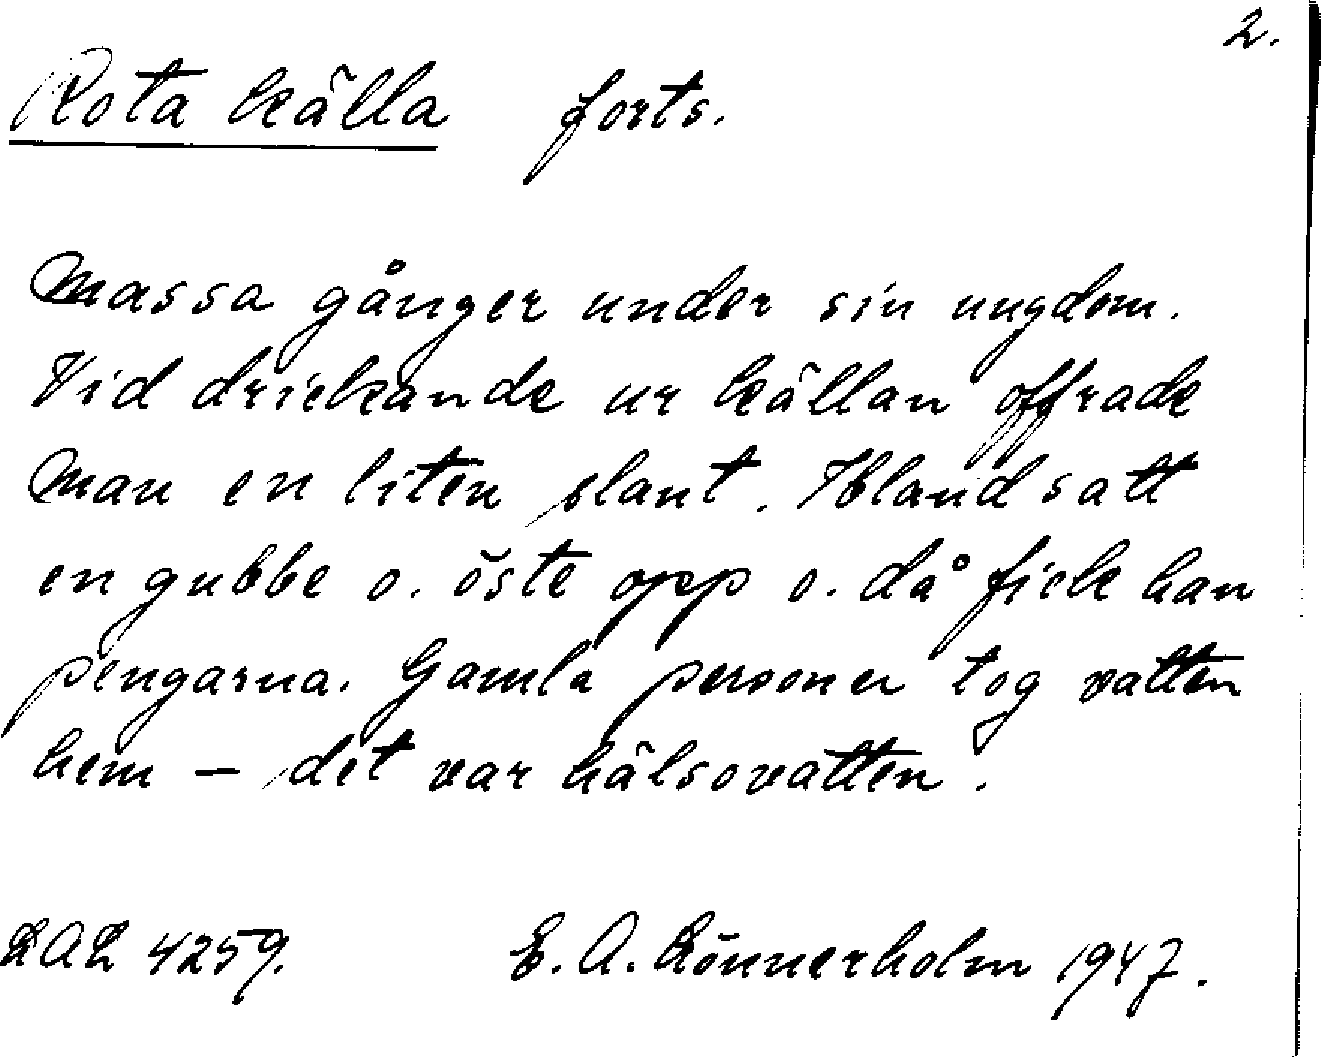 2.
Rota källa forts.
massa gånger under sin ungdom.
Vid drickande ur källan offrade
man en liten slant. Ibland satt
en gubbe o. öste opp o. då fick han
pengarna. Gamla personer tog vatten
hem – det var hälsovatten.
LAL 4259. E. A. Lönnerholm 1947.